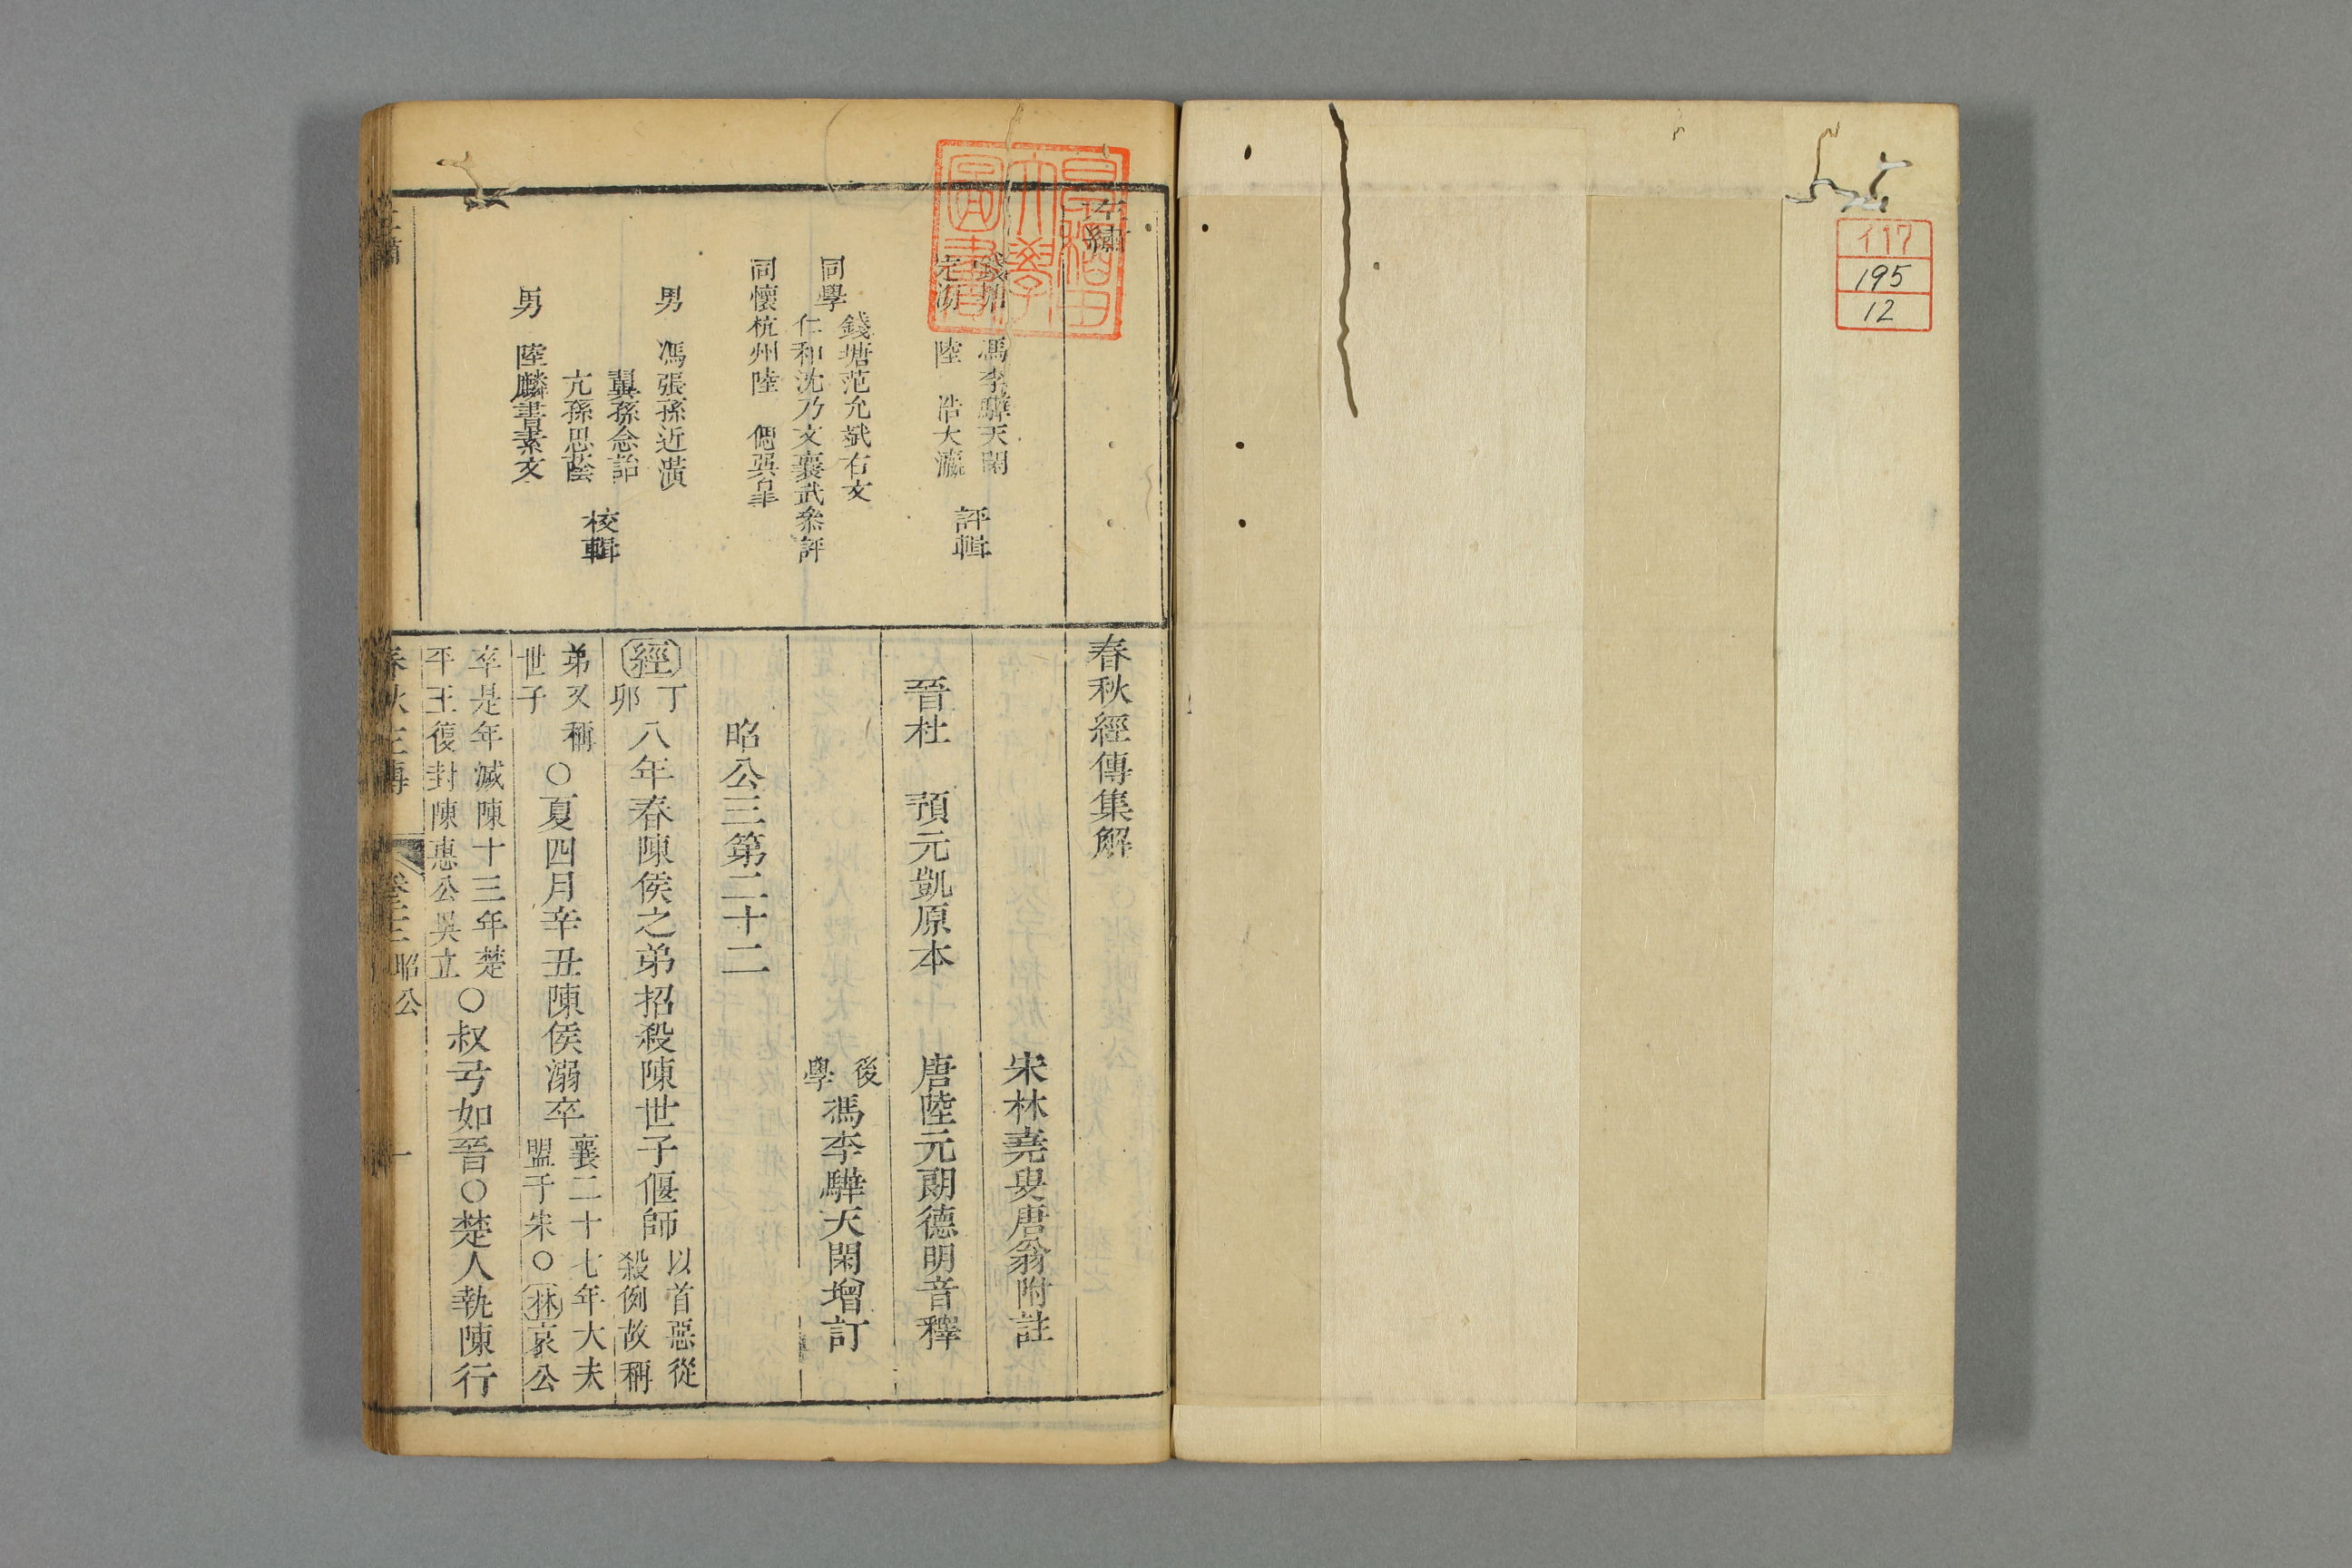 イ17
195
12
左繡
錢塘 馮李驊天閑
定海 陸 浩大瀛
評輯
同學
錢塘范允斌右文
仁和沈乃文襄武參評
同懷杭州陸 偲巽皐
男 馮張孫近潢
翼孫念詒
亢孫思蔭
男 陸麟書素文
校輯
早稲田大學圖書
春秋經傳集解
宋林堯叟唐翁附註
晉杜 預元凱原本 唐陸元朗德明音釋
後學馮李驊天閑增訂
昭公三第二十二
經丁卯八年春陳侯之弟招殺陳世子偃師以首惡從殺例故稱
弟又稱世子○夏四月辛丑陳侯溺卒襄二十七年大夫盟于宋○林哀公
卒是年滅陳十三年楚平王復封陳惠公吳立○叔弓如晉○楚人執陳行
春秋左傳 昭公 一